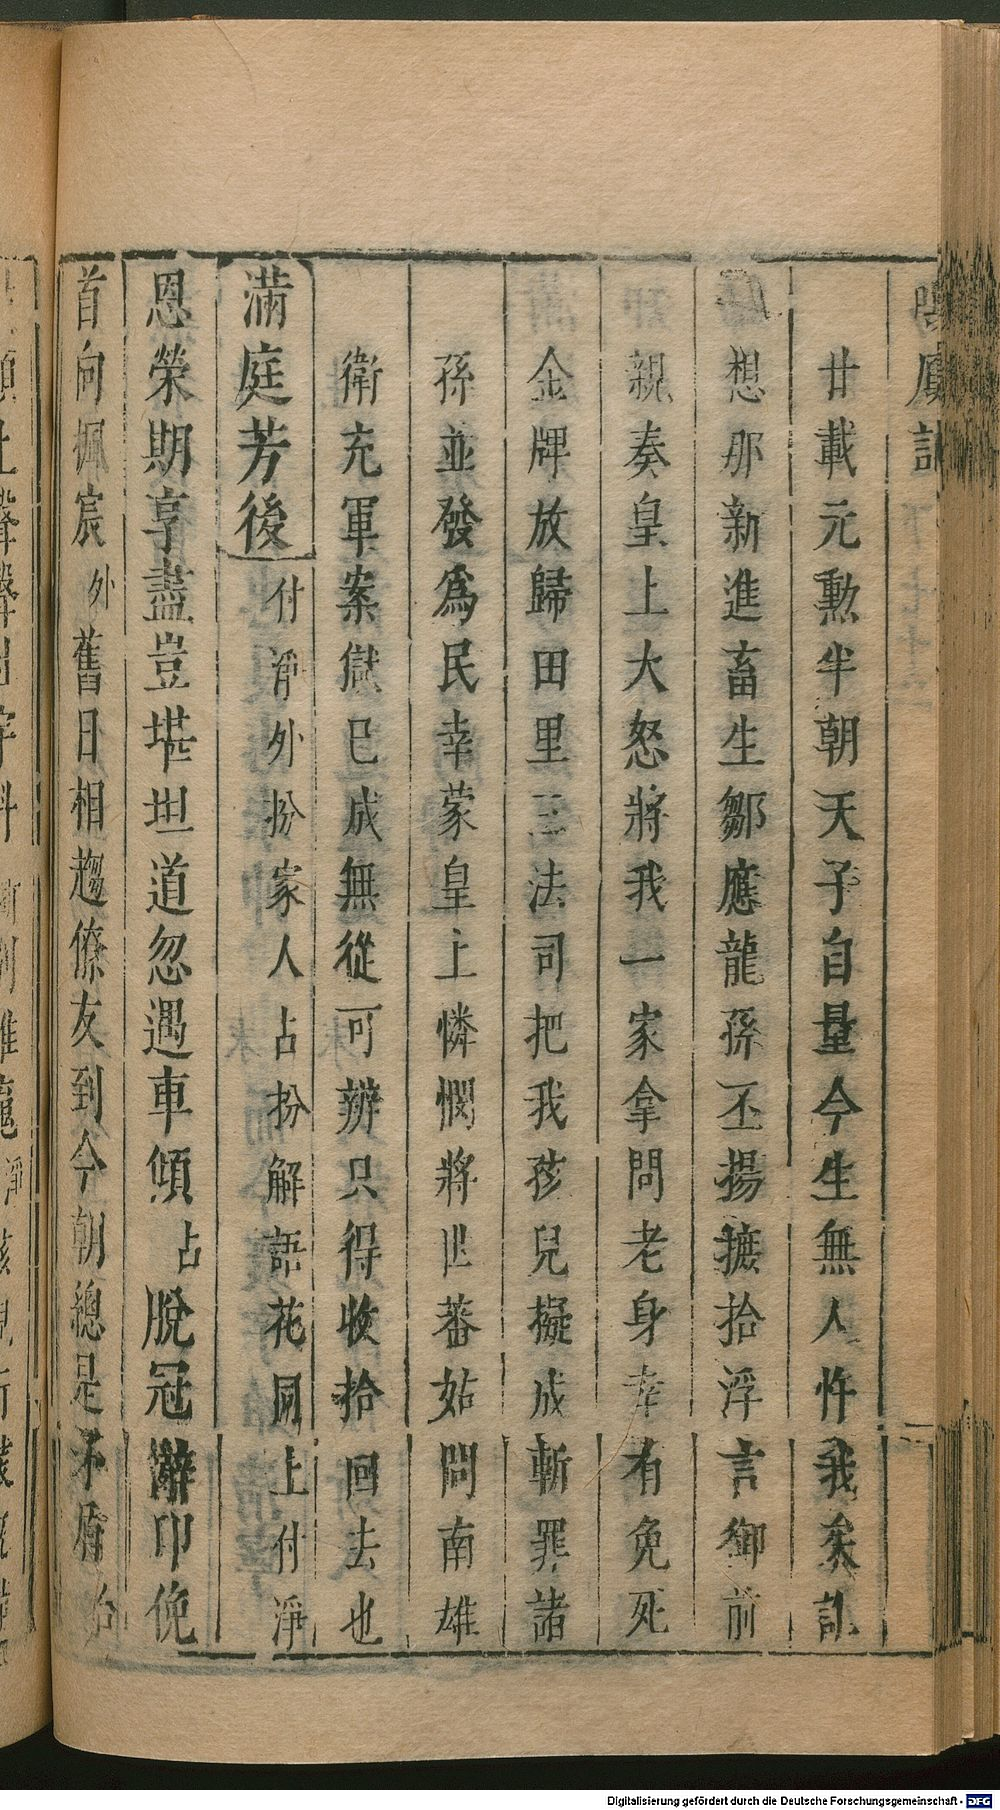 廿載元勲半朝天子自量今生無人忤我矣詎
想那新進畜生鄒應龍孫丕揚摭拾浮言御前
親奏皇上大怒將我一家拿問老身幸有免死
金牌放歸田里三法司把我孩兒擬成斬罪諸
孫並發爲民幸蒙皇上憐憫將世蕃姑問南雄
衛充軍案獄已成無從可辨只得收拾回去也
滿庭芳後 付淨外扮家人占扮解語花同上付淨
恩榮期享盡豈堪坦道忽遇車傾 占 脫冠辭印俛
首向楓宸 外 舊日相趨僚友到今朝總是不盾
Digitalisierung gefördert durch die Deutsche Forschungsgemeinschaft - DFG